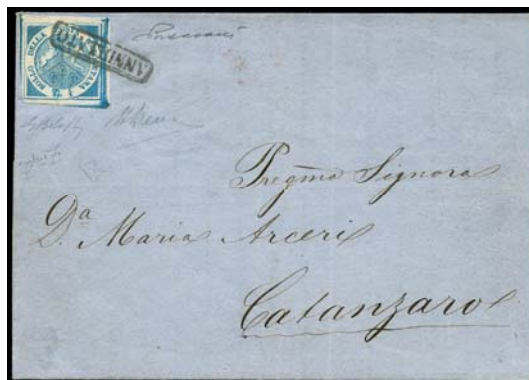 BOLLO DELLA
ANNULLATO
Pregma Signora
Da Maria Arceri
Catanzaro